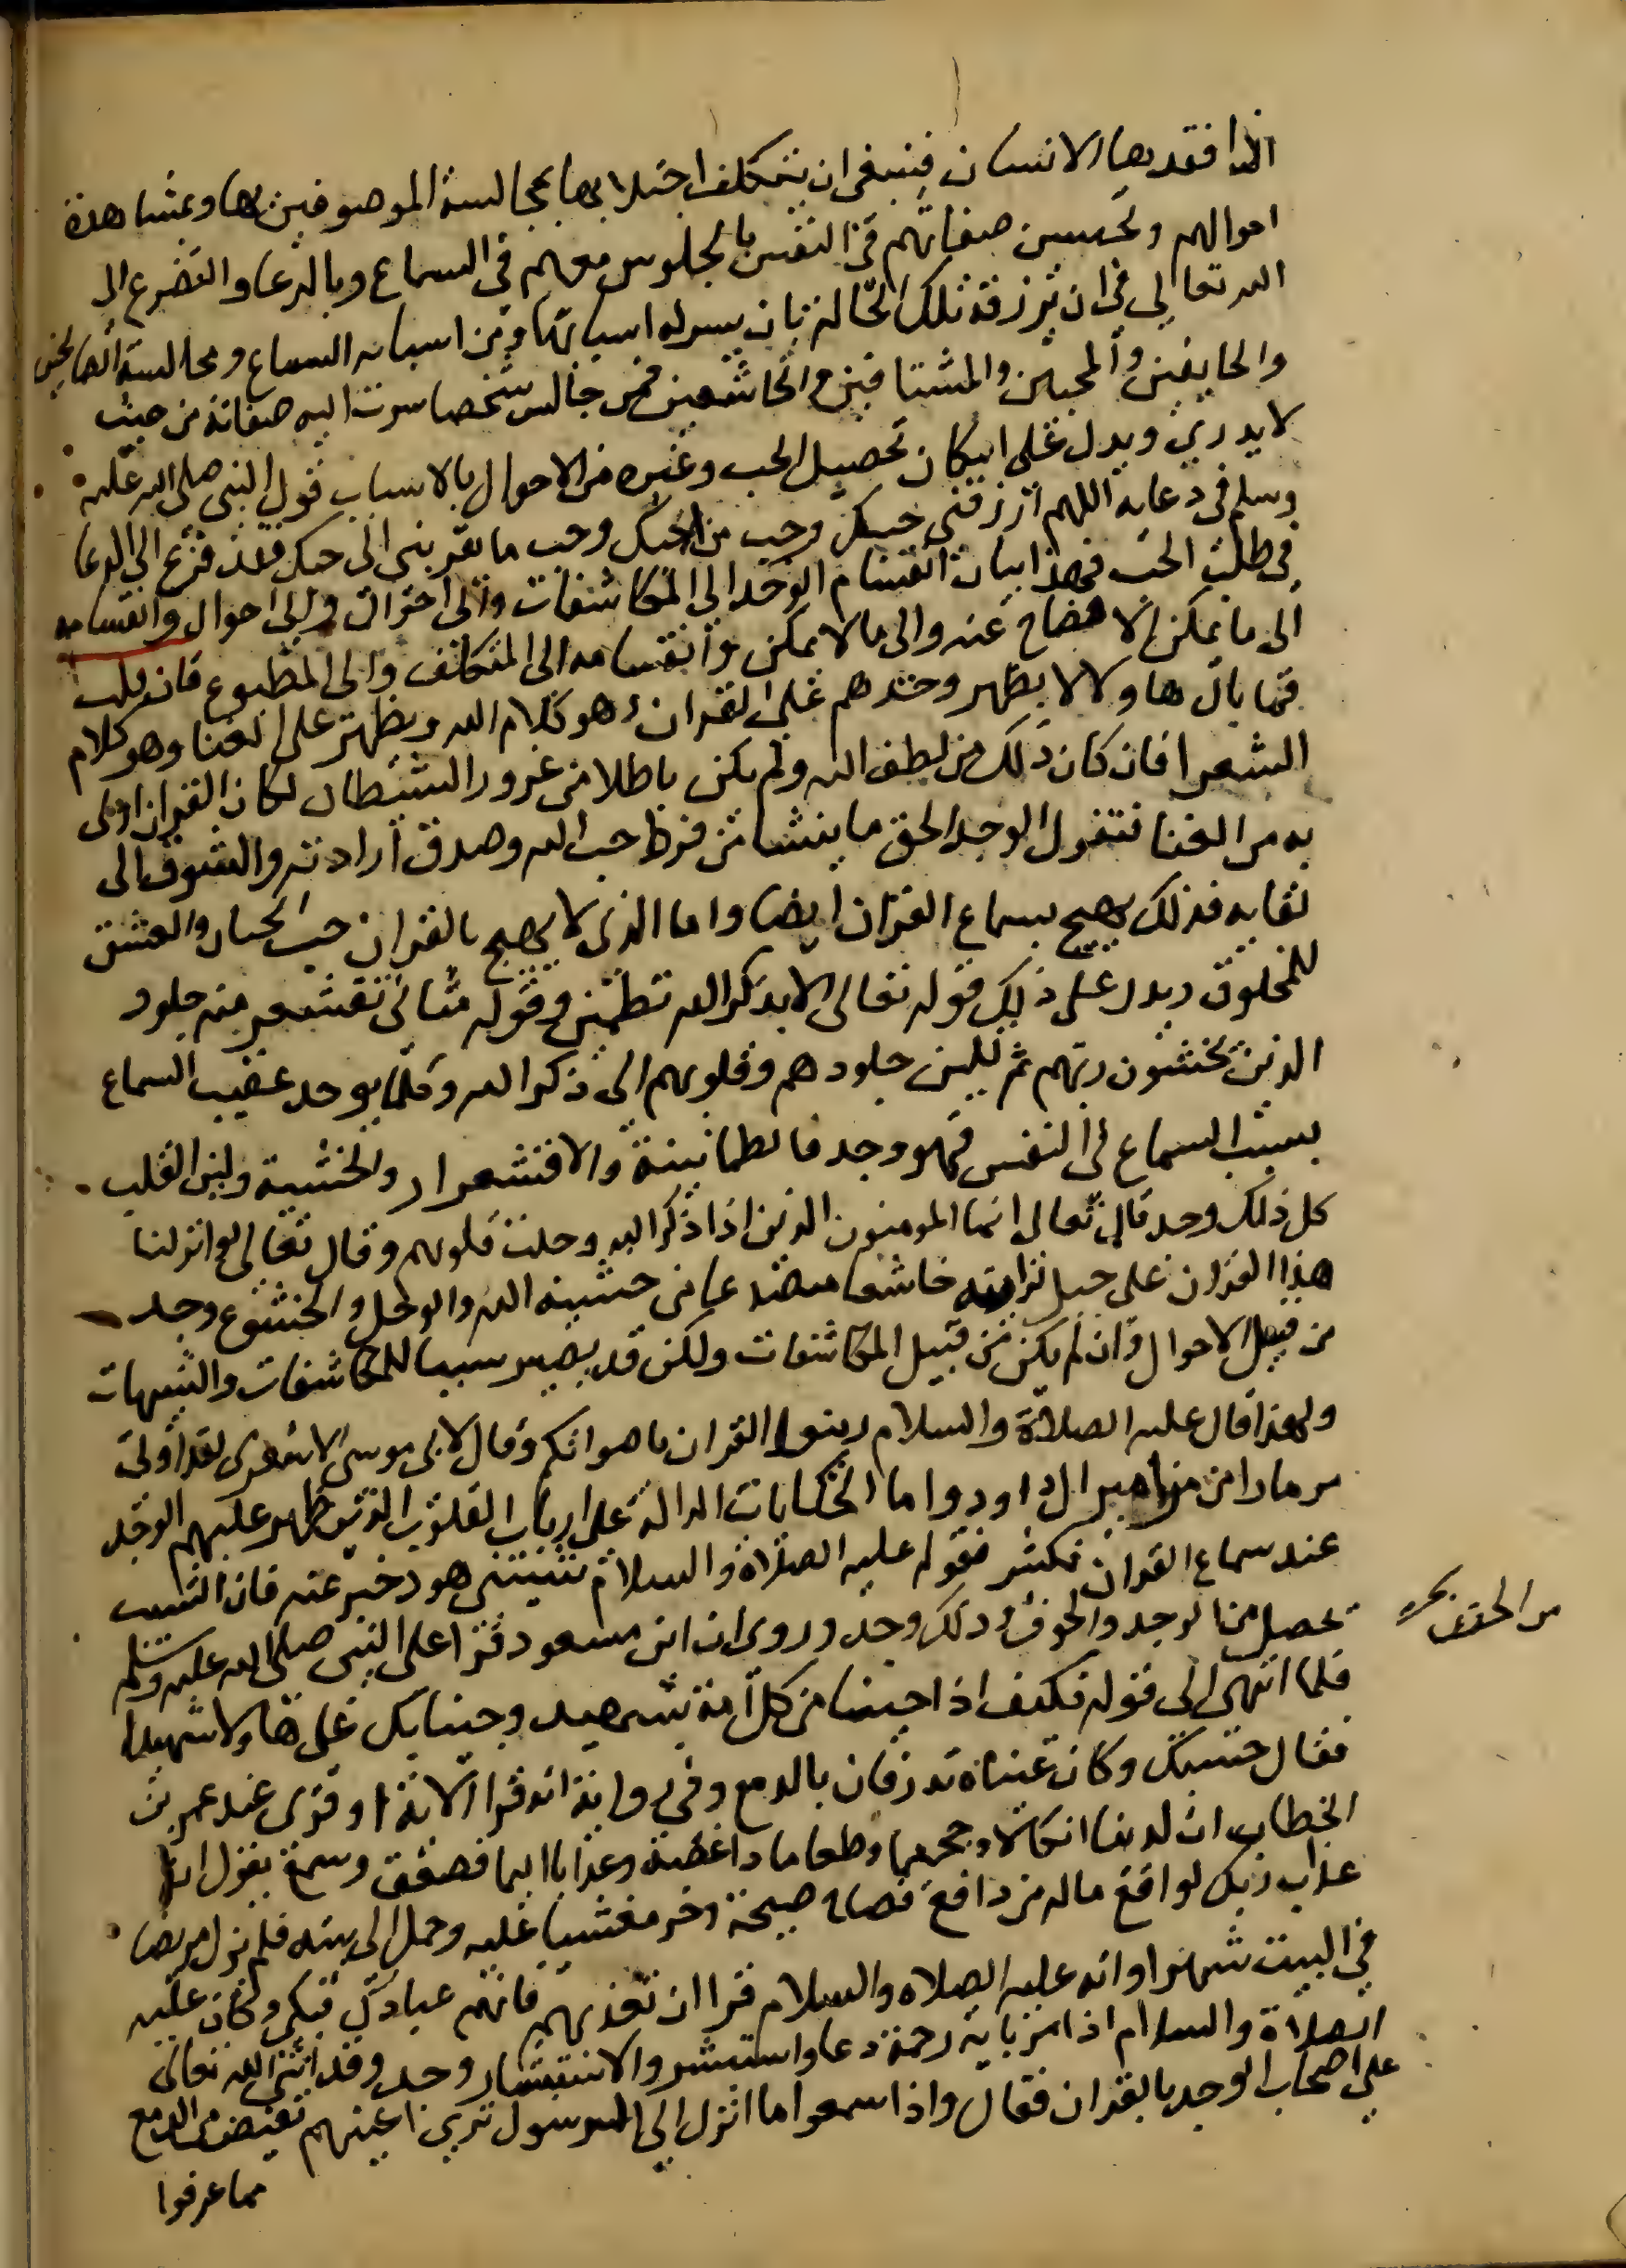 اذا فقدها الانسان فينبغي ان يتكلف اجتلابها بمجالسة الموصوفين بها وبمشاهدة
احوالهم وتحسين صفاتهم في النفس بالجلوس معهم في السماع وبالدعا والتضرع الى
الله تعالى في ان يرزقه تلك الحالة بان ييسر له اسبابها ومن اسبابه السماع ومجالسة الصالحين
والخايفين والمحبين والمشتاقين والخاشعين فمن جالس شخصا سرت اليه صفاته من حيث
لا يدري ويدل على امكان تحصيل الحب وغيره من الاحوال بالاسباب قول النبي صلى الله عليه
وسلم في دعايه اللهم ارزقني حبك وحب من احبك وحب ما يقربني الى حبك فقد فزع الى الدعا
في طلب الحب فهذا بيان انقسام الوجد الى المكاشفات والى احوال والى احوال وانقسامه
الى ما يمكن الافصاح عنه والى ما لا يمكن وانقسامه الى المتكلف والى المطبوع فان قلت
فما بال هاولا لا يظهر وجدهم على القران وهو كلام الله ويظهر على الغنا وهو كلام
الشعرا فان كان ذلك من لطف الله ولم يكن باطلا من غرور الشيطان لكان القران اولى
به من الغنا فنقول الوجد الحق ما ينشا من فرط حب الله وصدق ارادته والشوق الى
لقايه فذلك يهيج بسماع القران ايضا واما الذي لا يهيج بالقران حب الحسان والعشق
للمخلوق ويدل على ذلك قوله تعالى الا بذكر الله تطمئن وقوله مثاني تقشعر منه جلود
الذين يخشون ربهم ثم تلين جلودهم وقلوبهم الى ذكر الله وكلما يوجد عقيب السماع
بسبب السماع في النفس فهو وجد فالطمانينة والاقشعرار والخشية ولين القلب
كل ذلك وجد قال تعالى انما المومنون الذين اذا ذكر الله وجلت قلوبهم وقال تعالى لو انزلنا
هذا القران على جبل لرايته خاشعا متصدعا من خشية الله والوجل والخشوع وجد
من قبيل الاحوال وان لم يكن من قبيل المكاشفات ولكن قد يصير سببا للمكاشفات والتنبيهات
ولهذا قال عليه الصلاة والسلام زينوا القران باصواتكم وقال لابي موسى الاشعري لقد اوتي
مزمارا من مزامير ال داود واما الحكايات الدالة على ارباب القلوب الذين ظهر عليهم الوجد
عند سماع القران فكثير فقوله عليه الصلاة والسلام شيبتني هود خبر عنه فان الشيب
يحصل من الوجد والخوف وذلك وجد وروي ان ابن مسعود قرا على النبي صلى الله عليه وسلم
فلما انتهى الى قوله فكيف اذا جينا من كل امة بشهيد وجينا بك على هاولا شهيدا
فقال حسبك وكان عيناه تذرفان بالدمع وفي رواية انه قرا الاية او قرى عند عمر بن
الخطاب ان لدينا انكالا وجحيما وطعاما ذا غصة وعذابا اليما فصعق وسمع يقول ان
عذاب ربك لواقع ماله من دافع فصاح صيحة وخر مغشيا عليه وحمل الى بيته فلم يزل مريضا
في البيت شهرا وانه عليه الصلاه والسلام قرا ان تعذبهم فانهم عبادك فبكى وكان عليه
الصلاة والسلام اذا مر باية رحمة دعا واستبشر والاستبشار وجد وقد اثنى الله تعالى
على اصحاب الوجد بالقران فقال واذا سمعوا ما انزل الى الرسول ترى اعينهم تفيض من الدمع
مما عرفوا